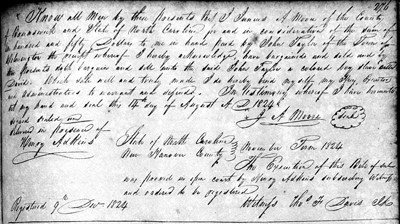 276
Know all Men by these presents that I James A Moore of the County
of Brunswick and State of North Carolina for and in consideration of the sum of
hundred and fifty Dollars to me in hand paid by John Taylor of the Town of
Wilmington the receipt whereof I hereby acknowledge, have bargained and sold and
these presents doth bargain and sell unto the said John Taylor a colored boy slave called
David. Which sale well and truly made I do hereby bind myself, my Heirs Executors
& administrators to warrant and defend. In testimony whereof I have hereunto
set my hand and seal this 14th day of August A.D. 1824
signed sealed and J A Moore Seal
delivered in presence of
Henry Adkins
State of North Carolina November Term 1824
New Hanover County
The Execution of this Bill of sale
was proved in open court by Henry Adkins subscribing Witness
and ordered to be registered
Registered 9th Decr 1824 Thos. F. Davis